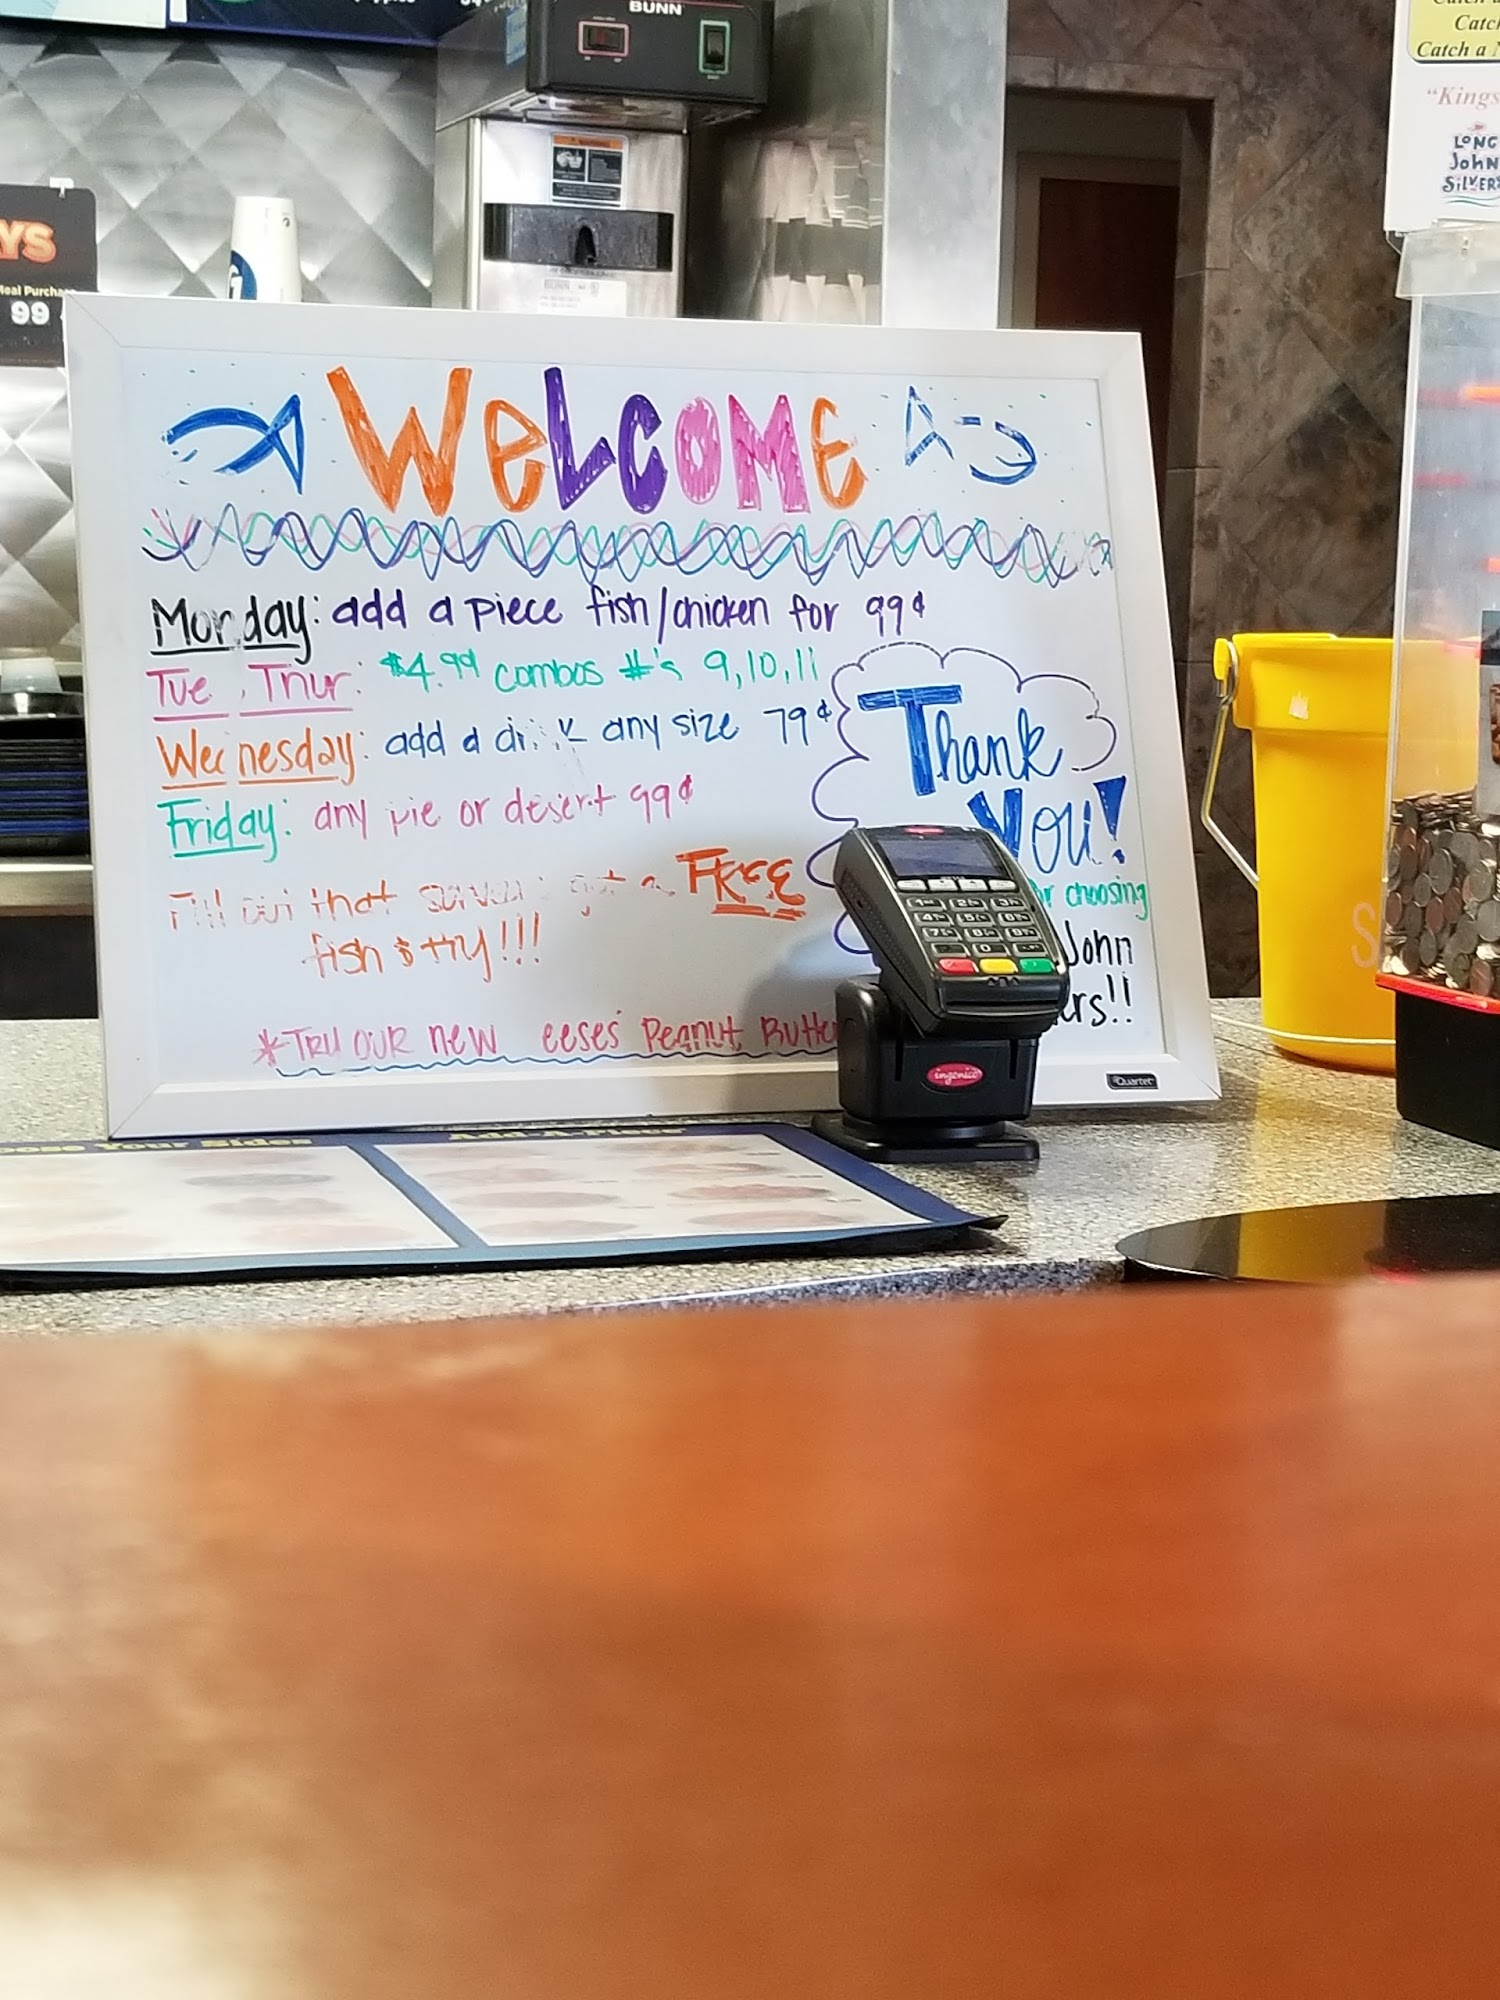 BUNN
Catch a
"Kings
LONG
John
SILVERS
YS
Meal Purchase
99
WeLCOME
Monday: add a piece fish/chicken for 99¢
Tue, Thur: $4.99 combos #'s 9,10,11
Wednesday: add a drink any size 79¢
Friday: any pie or desert 99¢
Fill out that survey get a FREE
fish & fry!!!
*TRY OUR new eeses' Peanut Butter
Thank
You!
choosing
John
ers!!
ingenico
Quartet
Your Sides